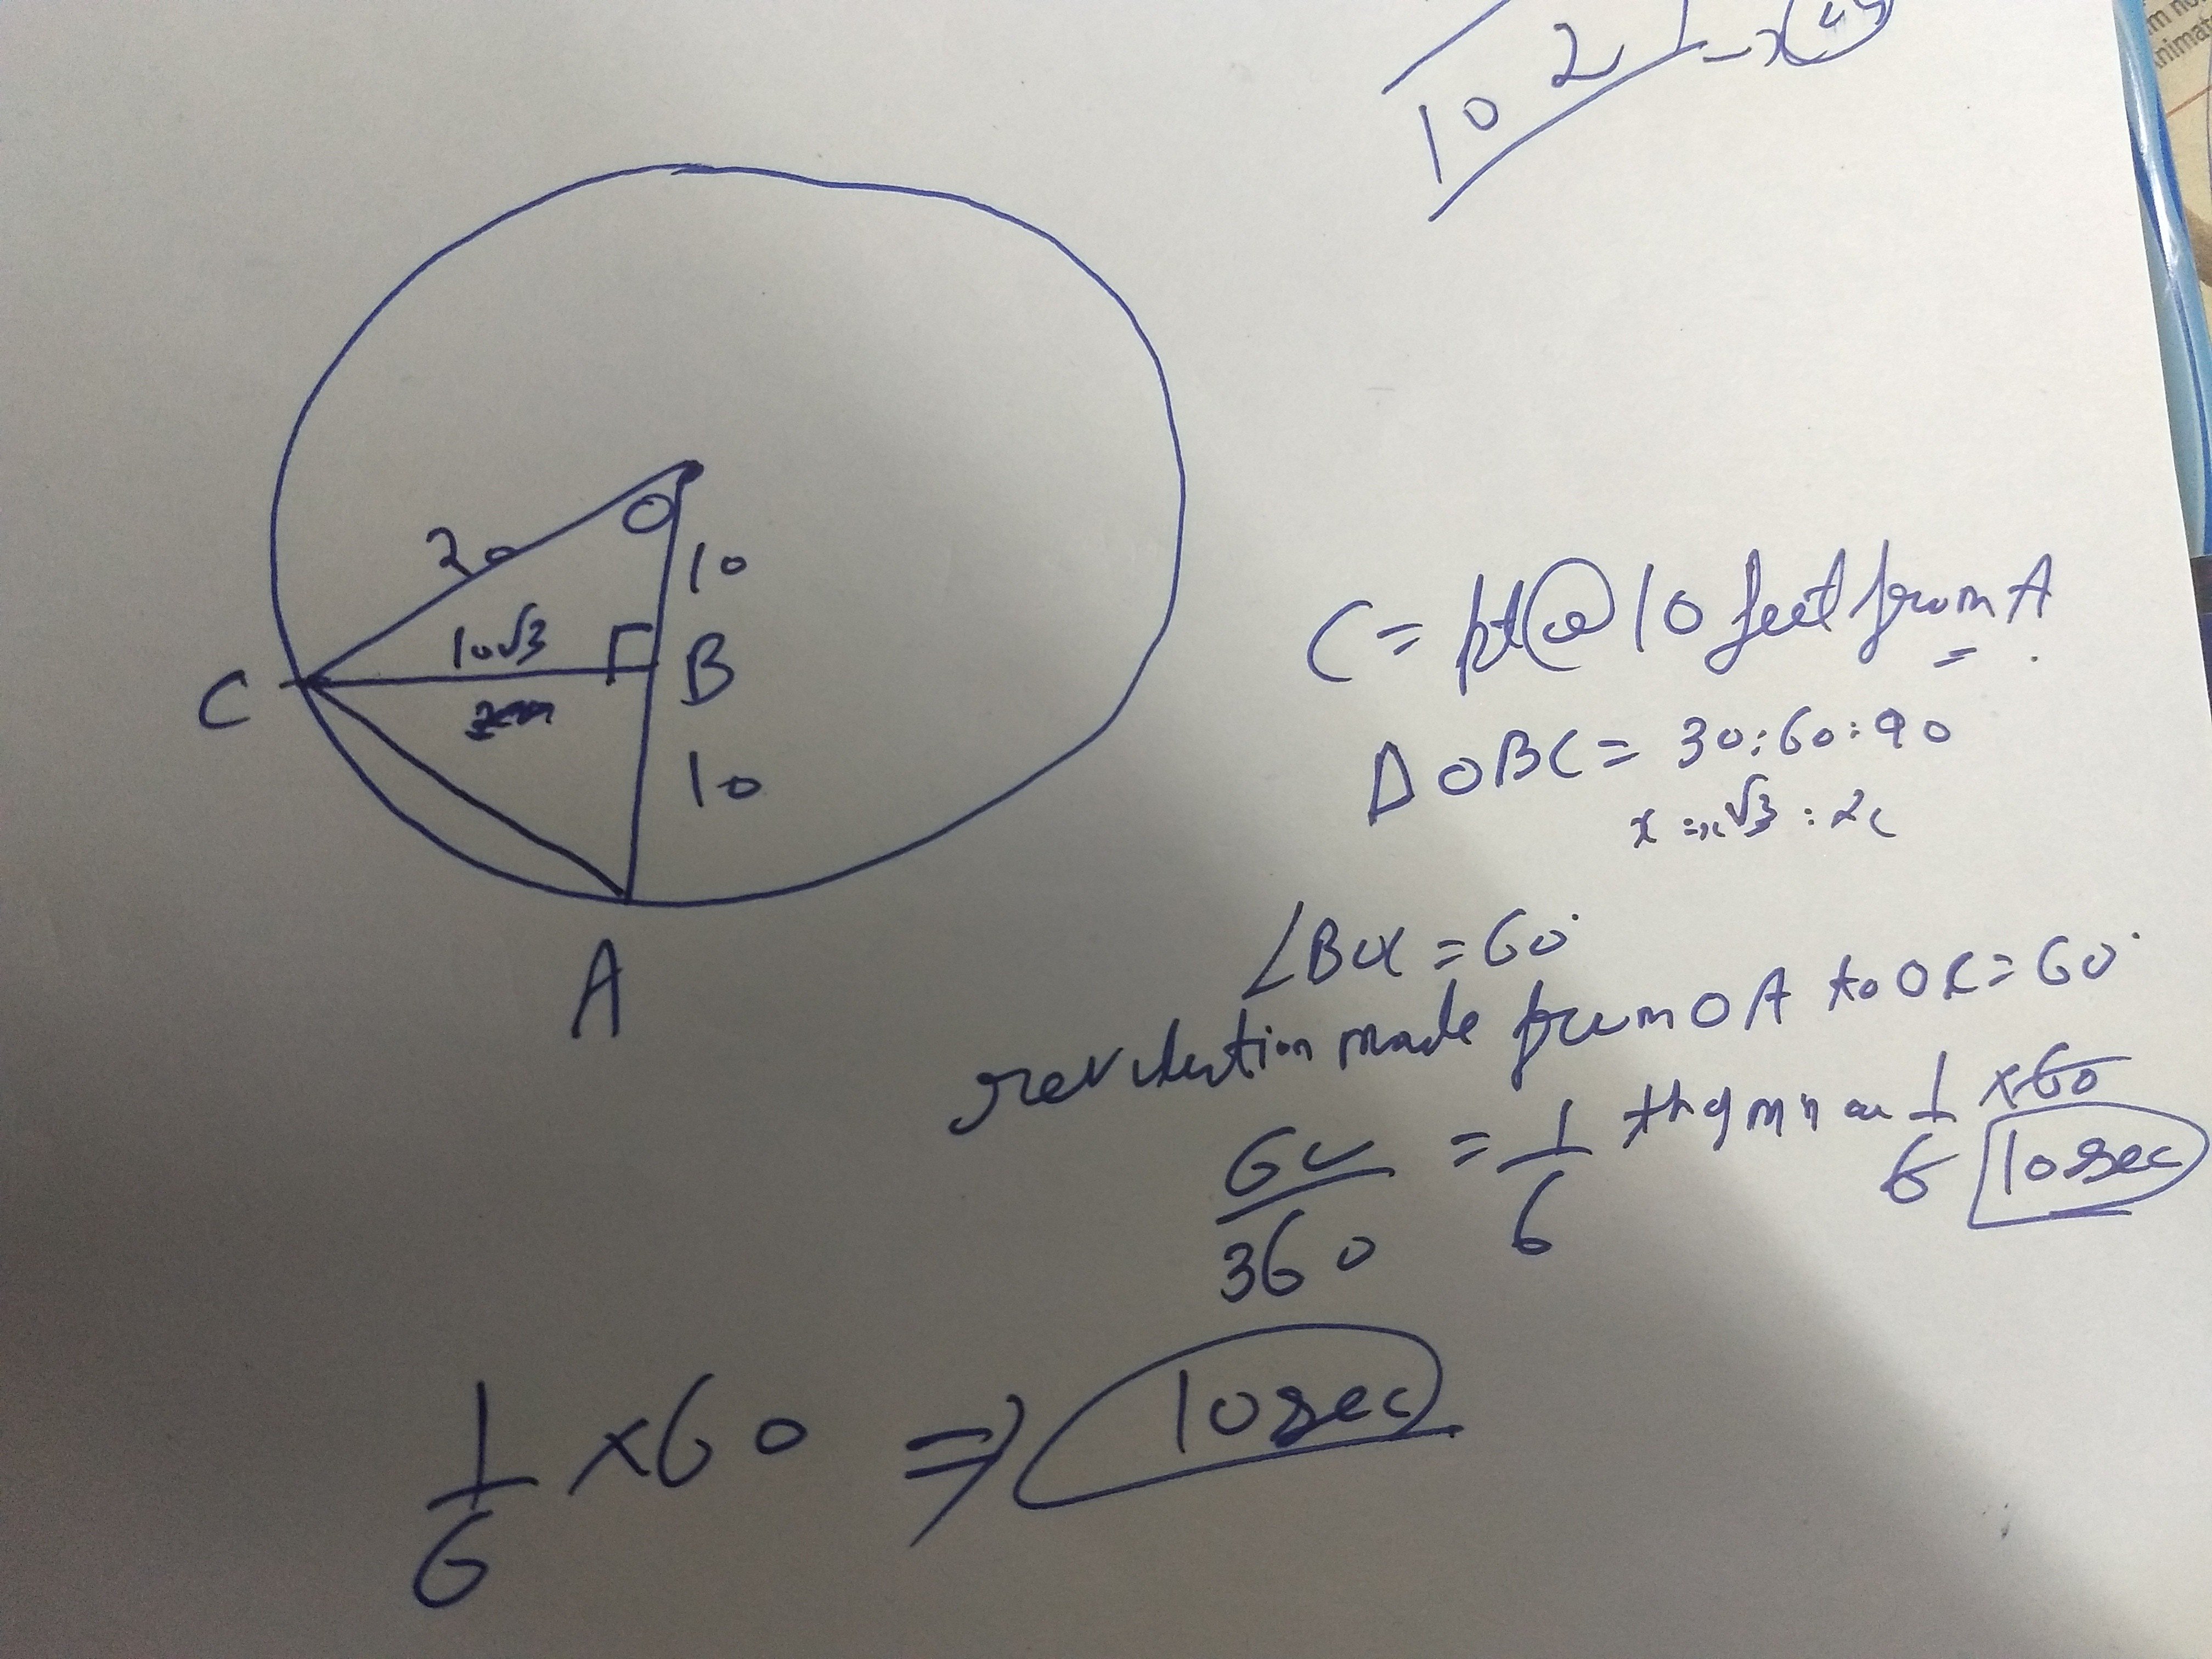 10 2 1
20
O
10
10√3
B
C
10
A
C = pt @ 10 feet from A
Δ OBC = 30:60:90
x : x√3 : 2x
∠BOC = 60°
revolution made from OA to OC = 60°
60/360 = 1/6 th of min or 1/6 × 60
10 sec
1/6 × 60 ⇒ 10 sec